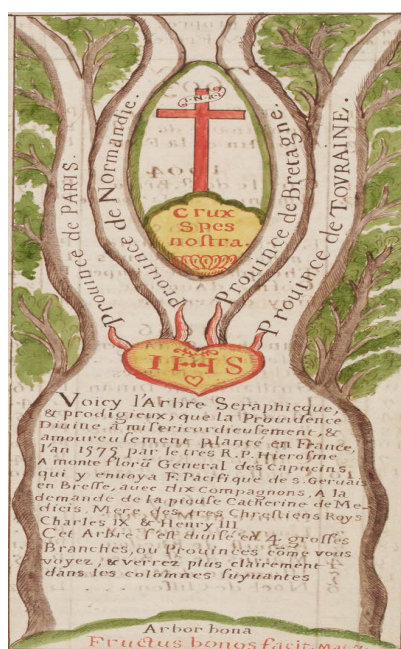 I.N.R.I
Crux
Spes
nostra.
Prouince de PARIS.
Prouince de Normandie.
Prouince de Bretagne.
Prouince de TOVRAINE.
IHS
Voicy l'Arbre Seraphicque,
& prodigieux, que la Prouidence
Diuine a misericordieusement, &
amoureusement planté en France,
l'an 1575 par le tres R. P. Hierosme
A monte florũ General des Capucins,
qui y enuoya F. Pacifique de S. Geruais
en Bresse, auec dix Compagnons, A la
demande de la pieuse Catherine de Me-
dicis, Mere des tres Chrestiens Roys
Charles IX & Henry III
Cet Arbre s'est diuisé en 4 grosses
Branches, ou Prouinces cõme vous
voyez, & verrez plus clairement
dans les colomnes suyuantes
Arbor bona
Fructus bonos facit. Mat. 7.